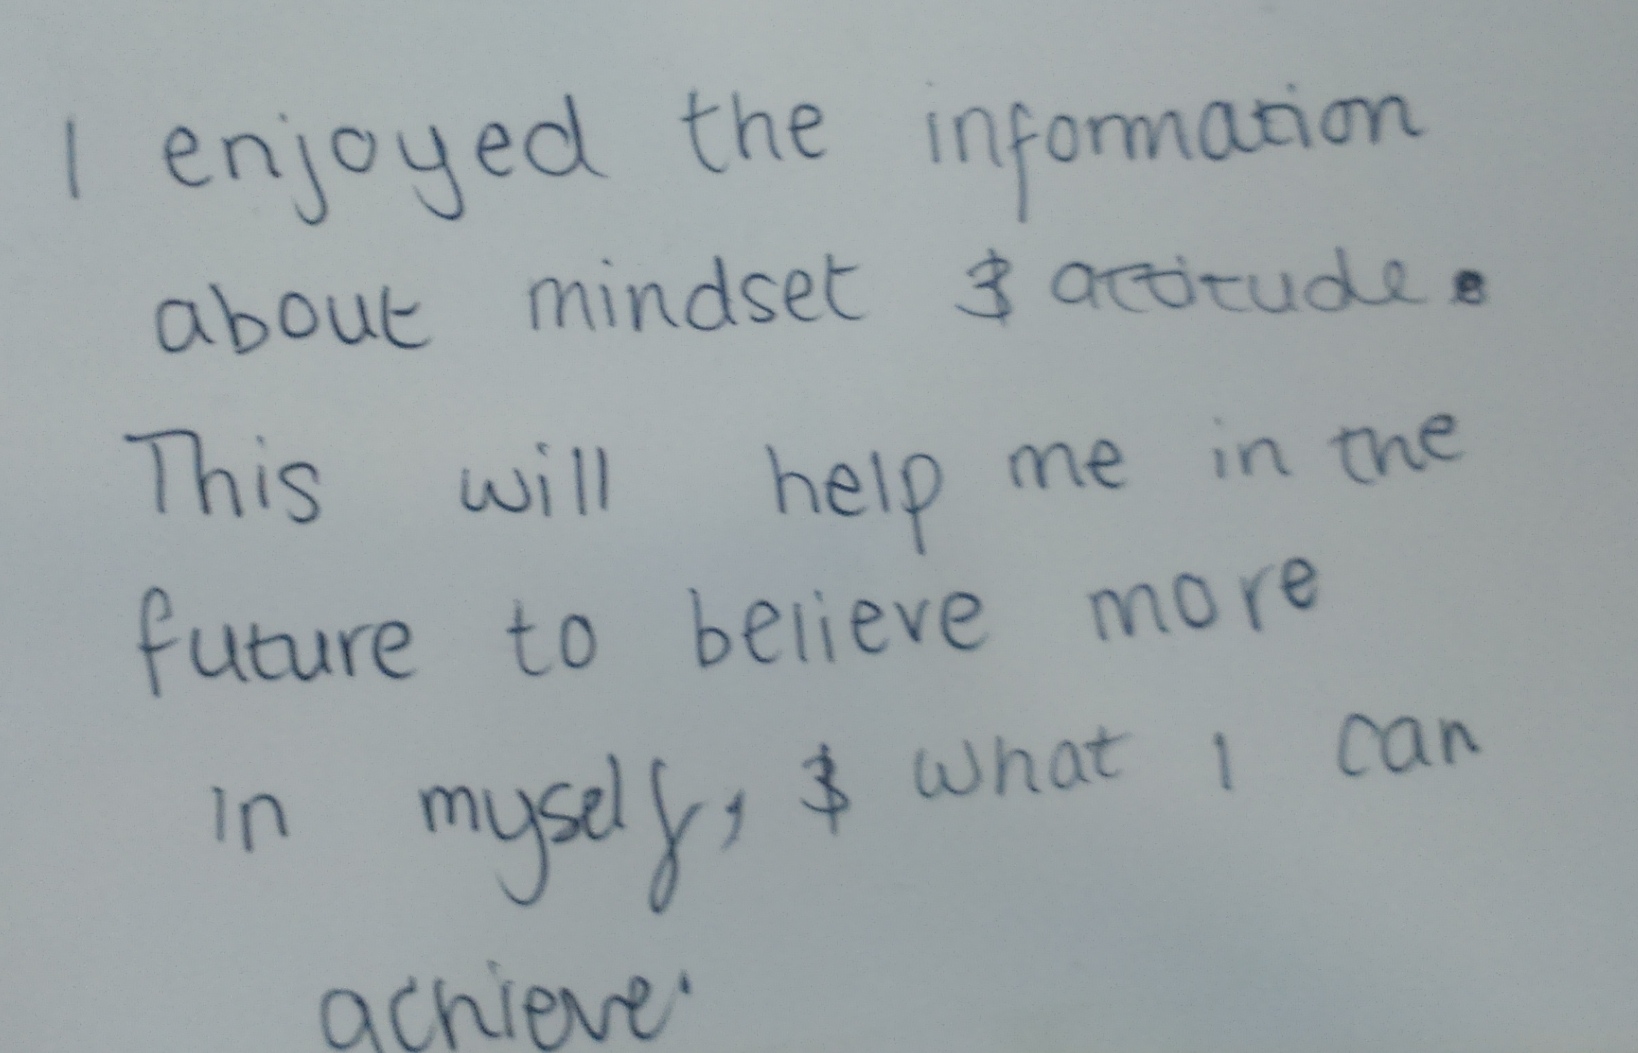 I enjoyed the information
about mindset & attitude.
This will help me in the
future to believe more
in myself, & what I can
achieve.